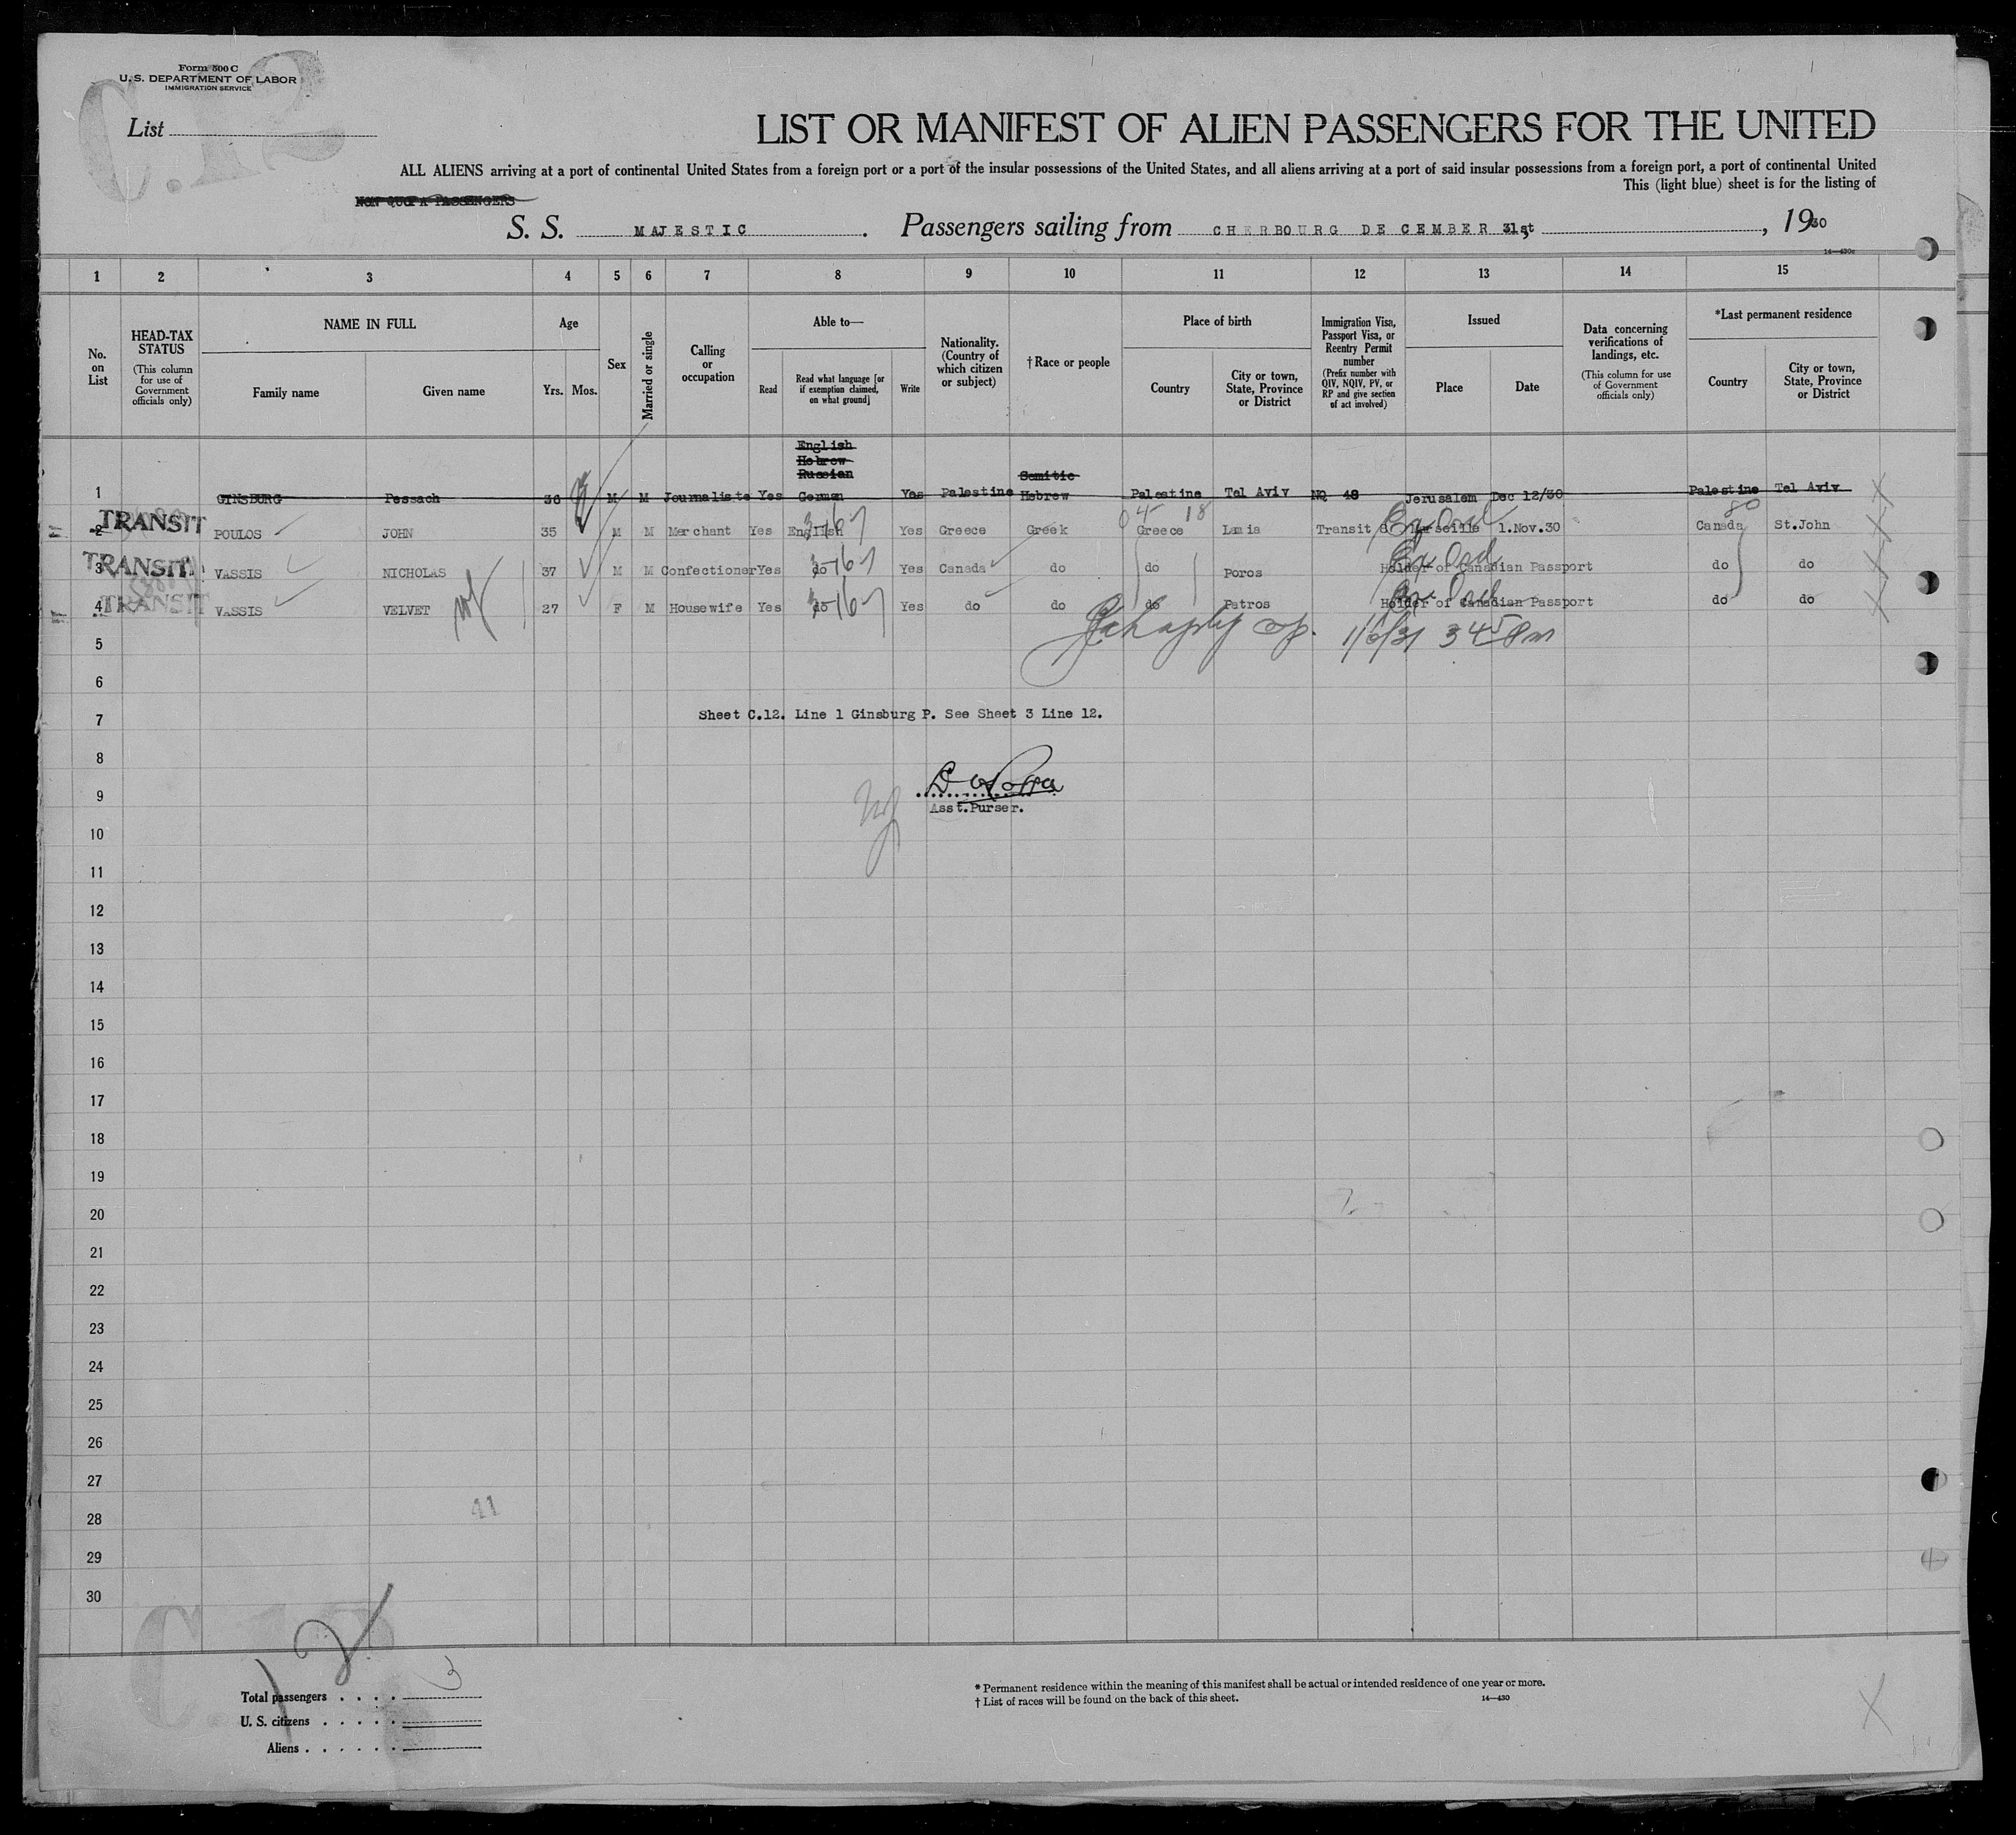 Form 500 C
U. S. DEPARTMENT OF LABOR
IMMIGRATION SERVICE
C.12
List
LIST OR MANIFEST OF ALIEN PASSENGERS FOR THE UNITED
ALL ALIENS arriving at a port of continental United States from a foreign port or a port of the insular possessions of the United States, and all aliens arriving at a port of said insular possessions from a foreign port, a port of continental United
This (light blue) sheet is for the listing of
NON QUOTA PASSENGERS
S. S. MAJESTIC. Passengers sailing from CHERBOURG DECEMBER 31st, 1930
14—430c
1 2 3 4 5 6 7 8 9 10 11 12 13 14 15
No. on List
HEAD-TAX STATUS (This column for use of Government officials only)
NAME IN FULL
Family name Given name
Age
Yrs. Mos.
Sex
Married or single
Calling or occupation
Able to—
Read
Read what language [or if exemption claimed, on what ground]
Write
Nationality. (Country of which citizen or subject)
†Race or people
Place of birth
Country
City or town, State, Province or District
Immigration Visa, Passport Visa, or Reentry Permit number (Prefix number with QIV, NQIV, PV, or RP and give section of act involved)
Issued
Place Date
Data concerning verifications of landings, etc. (This column for use of Government officials only)
*Last permanent residence
Country
City or town, State, Province or District
English
Hebrew
Russian Semitic
1 GINSBURG Pessach 36 M M Journaliste Yes German Yes Palestine Hebrew Palestine Tel Aviv NQ 48 Jerusalem Dec 12/30 Palestine Tel Aviv
04 18 80
2 TRANSIT POULOS JOHN 35 M M Merchant Yes English Yes Greece Greek Greece Lamia Transit Marseille 1.Nov.30 Canada St.John
3 TRANSIT VASSIS NICHOLAS 37 M M Confectioner Yes do Yes Canada do do Poros Holder of Canadian Passport do do
4 TRANSIT VASSIS VELVET 27 F M Housewife Yes do Yes do do do Patros Holder of Canadian Passport do do
5 1/6/31 3 45 Pm
6
7 Sheet C.12. Line 1 Ginsburg P. See Sheet 3 Line 12.
8
9
Asst.Purser.
10
11
12
13
14
15
16
17
18
19
20
21
22
23
24
25
26
27
28 41
29
30
C.12
Total passengers . . . . 3
U. S. citizens . . . . .
Aliens . . . . . .
* Permanent residence within the meaning of this manifest shall be actual or intended residence of one year or more.
† List of races will be found on the back of this sheet. 14—430